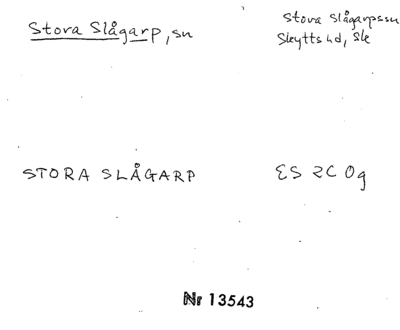 Stora Slågarp, sn
Stora Slågarps sn
Skytts hd, Sk
STORA SLÅGARP
ES 2C 0g
Nr 13543